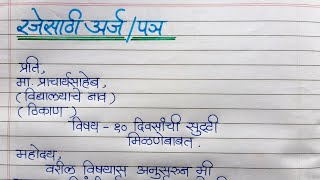 रजेसाठी अर्ज/पत्र
प्रति,
मा. प्राचार्यसाहेब,
(विद्यालयाचे नाव)
(ठिकाण)
विषय - १० दिवसांची सुट्टी
मिळणेबाबत.
महोदय,
वरील विषयास अनुसरुन मी